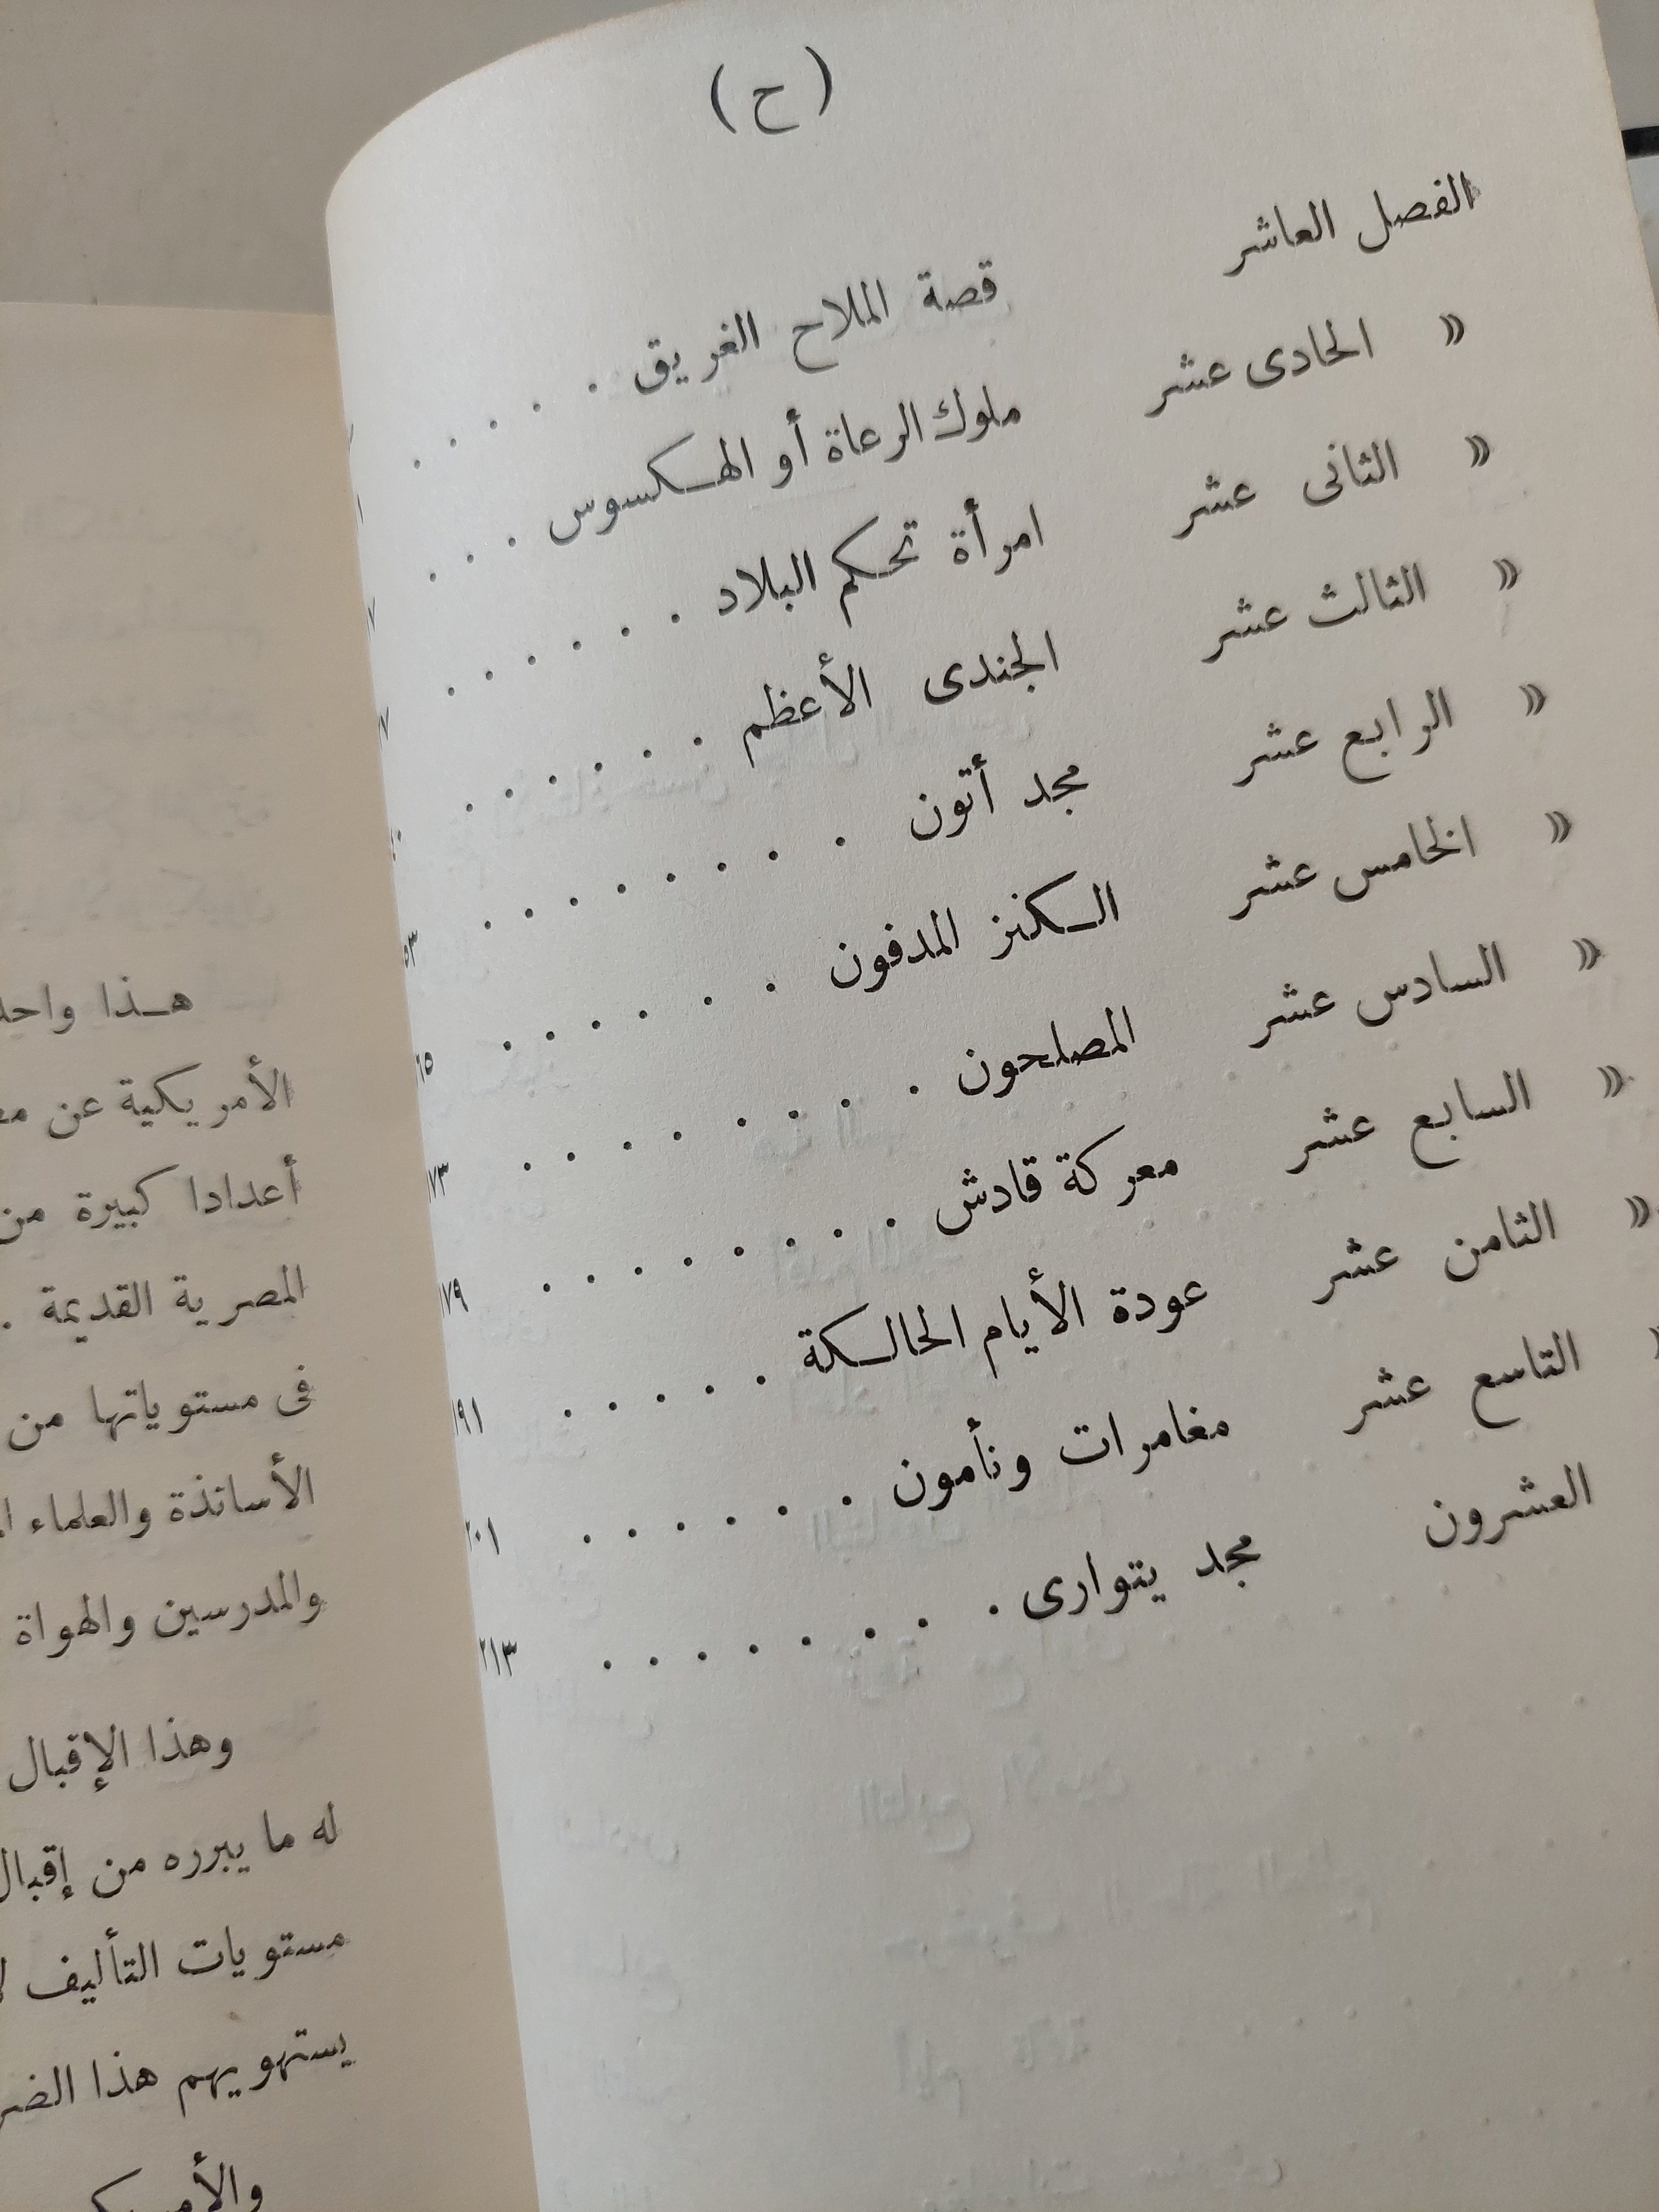 ( ح )
الفصل العاشر قصة الملاح الغريق . . . . .
« الحادى عشر ملوك الرعاة أو الهكسوس . . .
« الثانى عشر امرأة تحكم البلاد . . . . . .
« الثالث عشر الجندى الأعظم . . . . . .
« الرابع عشر مجد أتون . . . . . . . ٥٣
« الخامس عشر الكنز المدفون . . . . . . ٦٥
« السادس عشر المصلحون . . . . . . . ١٧٣
« السابع عشر معركة قادش . . . . . . . . ١٧٩
« الثامن عشر عودة الأيام الحالكة . . . . . ١٩١
« التاسع عشر مغامرات ونأمون . . . . . . ٢٠١
العشرون مجد يتوارى . . . . . . . . ٢١٣
هذا واحد
الأمريكية عن
أعدادا كبيرة من
المصرية القديمة .
فى مستوياتها من
الأساتذة والعلماء
والمدرسين والهواة
وهذا الإقبال
له ما يبرره من إقبال
مستويات التأليف
يستهويهم هذا